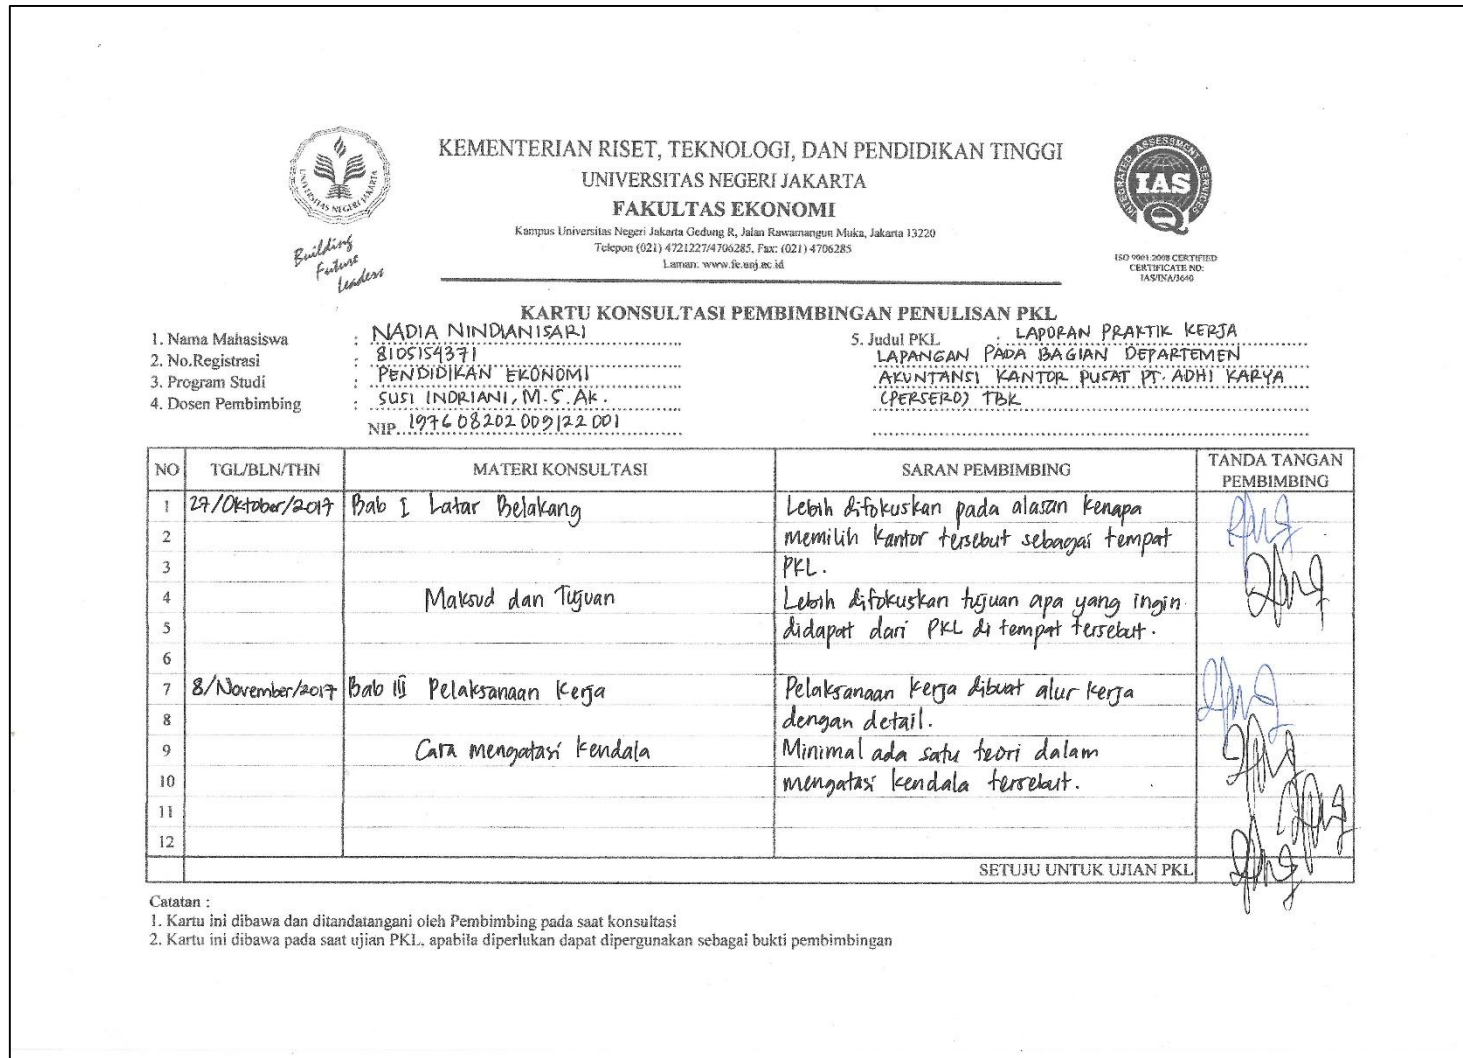 KEMENTERIAN RISET, TEKNOLOGI, DAN PENDIDIKAN TINGGI
UNIVERSITAS NEGERI JAKARTA
FAKULTAS EKONOMI
Kampus Universitas Negeri Jakarta Gedung R, Jalan Rawamangun Muka, Jakarta 13220
Telepon (021) 4721227/4706285, Fax: (021) 4706285
Laman: www.fe.unj.ac.id
UNIVERSITAS NEGERI JAKARTA
Building
Future
Leaders
INTEGRATED ASSESSMENT SERVICES
IAS
ISO 9001:2008 CERTIFIED
CERTIFICATE NO:
IAS/INA/3640
KARTU KONSULTASI PEMBIMBINGAN PENULISAN PKL
1. Nama Mahasiswa : NADIA NINDIANISARI
2. No.Registrasi : 8105154371
3. Program Studi : PENDIDIKAN EKONOMI
4. Dosen Pembimbing : SUSI INDRIANI, M.S.Ak.
NIP. 197608202009122001
5. Judul PKL : LAPORAN PRAKTIK KERJA
LAPANGAN PADA BAGIAN DEPARTEMEN
AKUNTANSI KANTOR PUSAT PT. ADHI KARYA
(PERSERO) TBK
NO TGL/BLN/THN MATERI KONSULTASI SARAN PEMBIMBING TANDA TANGAN
PEMBIMBING
1 27/Oktober/2017 Bab I Latar Belakang Lebih difokuskan pada alasan kenapa
2 memilih kantor tersebut sebagai tempat
3 PKL.
4 Maksud dan Tujuan Lebih difokuskan tujuan apa yang ingin
5 didapat dari PKL di tempat tersebut.
6
7 8/November/2017 Bab III Pelaksanaan Kerja Pelaksanaan kerja dibuat alur kerja
8 dengan detail.
9 Cara mengatasi kendala Minimal ada satu teori dalam
10 mengatasi kendala tersebut.
11
12
SETUJU UNTUK UJIAN PKL
Catatan :
1. Kartu ini dibawa dan ditandatangani oleh Pembimbing pada saat konsultasi
2. Kartu ini dibawa pada saat ujian PKL, apabila diperlukan dapat dipergunakan sebagai bukti pembimbingan